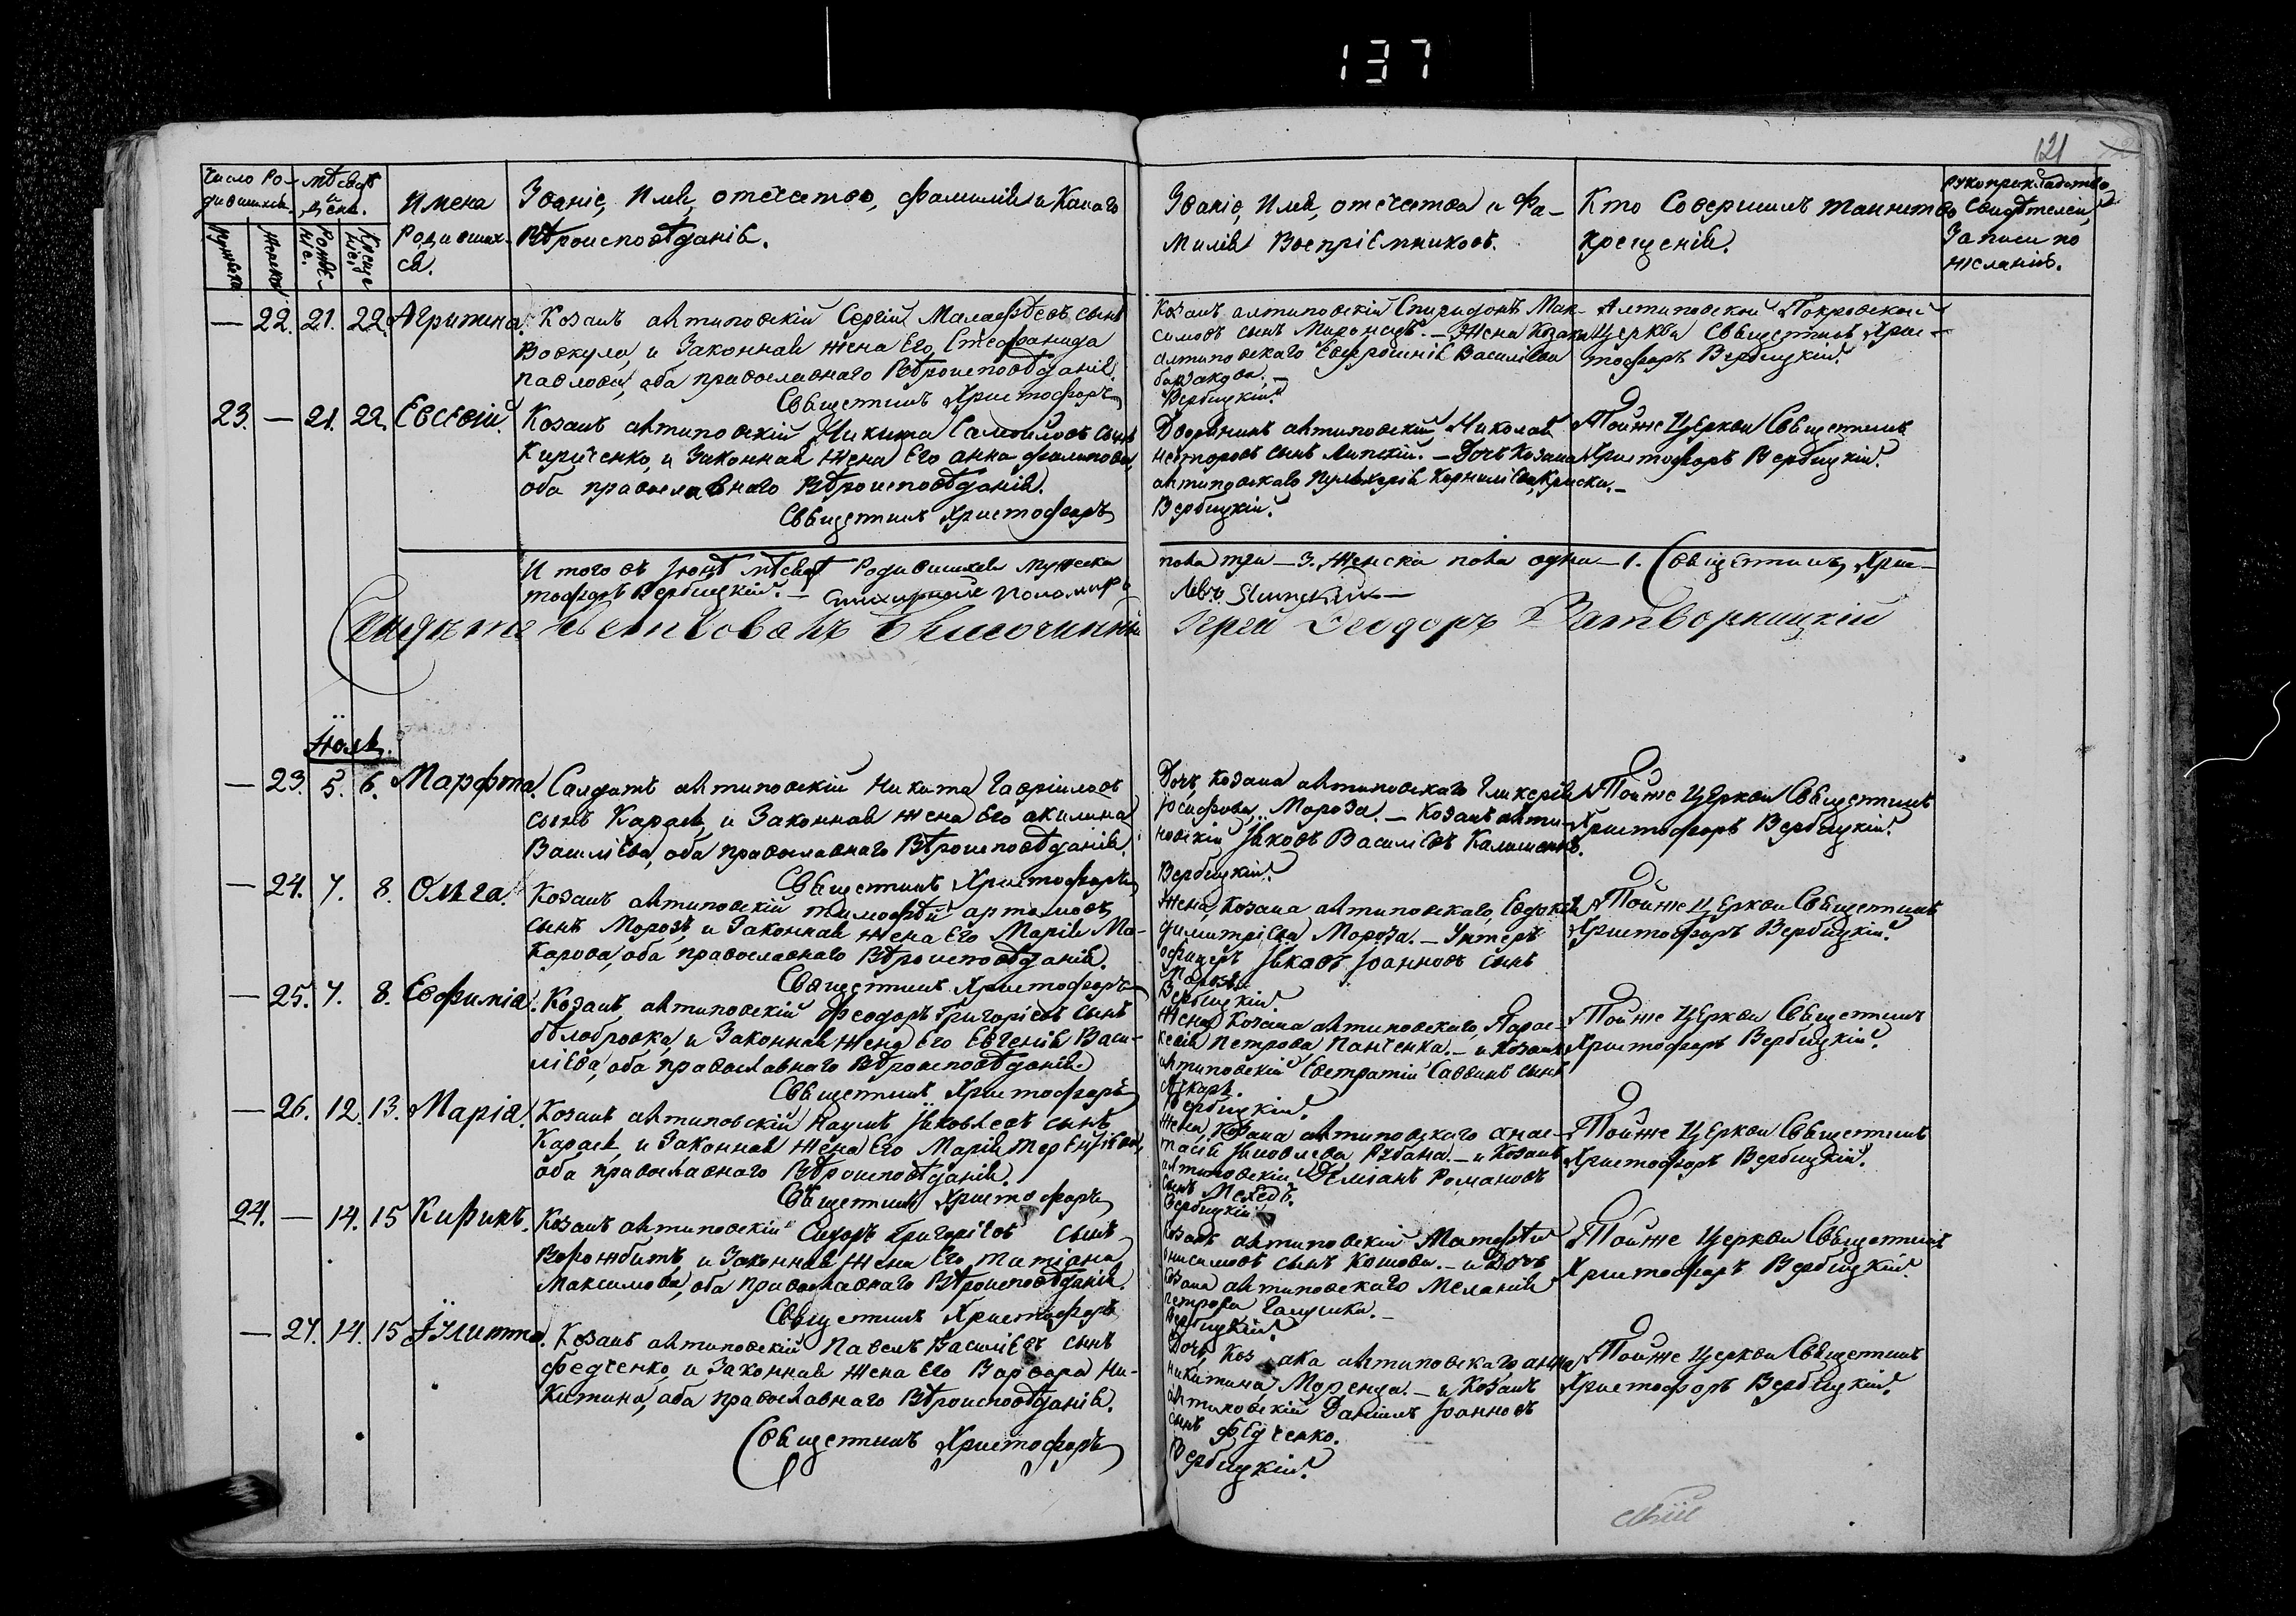 137
121
Число Ро- Мѣсяцъ
дившихся. и
День.
Имена
Родивших-
ся.
Званіе, Имя, отечество, фамилія и Какого
Вѣроисповѣданія.
Званіе, Имя, отечество и Фа-
милія Воспріемниковъ.
Кто Совершилъ таинство
Крещенія.
Рукоприкладство
Свидѣтелей
Записи по
желанію.
Мужеска Женска Рожде-
ніе. Креще
ніе.
— 22. 21. 22. Агрипина. Козакъ антиповскій Сергій Малафѣевъ сынъ
Воскуло, и Законная жена Его Стефанида
Павлова, оба православнаго Вѣроисповѣданія.
Священникъ Христофоръ
Козакъ антиповскій Спиридонъ Мак-
симовъ сынъ Миронецъ. — Жена Козака
антиповскаго Евфросинія Василіева
Вербицкій.
Антиповской Покровской
Церкви Священникъ Хрис-
тофоръ Вербицкій.
23. — 21. 22. Евсевій. Козакъ антиповскій Никита Самойловъ сынъ
Кириченко, и Законная жена Его анна филипова,
оба православнаго Вѣроисповѣданія.
Священникъ Христофоръ
Дворянинъ антиповскій Николай
несторовъ сынъ Липскій. — Дочь Козака
антиповскаго Пульхерія Корниліева Криска. —
Вербицкій.
Тойже Церкви Священникъ
Христофоръ Вербицкій.
И того въ Іюнѣ мѣсяцѣ Родившихся мужеска
пола три — 3. Женска пола одна — 1. Священникъ Хрис-
тофоръ Вербицкій. — Стихирной Пономарь
Левъ
Свидѣтельствовалъ Благочинный
Іерей Ѳеодоръ Затворницкій
Іюль.
— 23. 5. 6. Марфта. Салдатъ антиповскій Никита Гавріиловъ
сынъ Карась, и Законная жена Его акилина
Василіева, оба православнаго Вѣроисповѣданія.
Священникъ Христофоръ
Дочь Козака антиповскаго Гликерія
Іосифова Мороза. — Козакъ анти-
повскій Іяковъ Василіевъ
Вербицкій.
Тойже Церкви Священникъ
Христофоръ Вербицкій.
— 24. 7. 8. Ольга. Козакъ антиповскій тимофѣй артемовъ
сынъ Морозъ, и Законная жена Его Марія Ма-
карова, оба православнаго Вѣроисповѣданія.
Священникъ Христофоръ
Жена Козака антиповскаго, Евдокія
димитріева Мороза. — Унтеръ
офицеръ Іяковъ Іоанновъ сынъ
Морозъ.
Вербицкій
Тойже Церкви Священникъ
Христофоръ Вербицкій.
— 25. 7. 8. Евфимія. Козакъ антиповскій Феодоръ Григоріевъ сынъ
бѣлобровка, и Законная жена Его Евгенія Васи-
ліева, оба православнаго Вѣроисповѣданія
Священникъ Христофоръ
Жена Козака антиповскаго, Парас-
кевія Петрова Панченка. — и Козакъ
антиповскій Евстратій Саввинъ сынъ
Вербицкій.
Тойже Церкви Священникъ
Христофоръ Вербицкій.
— 26. 12. 13. Марія. Козакъ антиповскій Наумъ Іяковлевъ сынъ
Карась, и Законная жена Его Марія Терентіева,
оба православнаго Вѣроисповѣданія.
Священникъ Христофоръ
Жена Козака антиповскаго анас-
тасія Іяковлева Рубана. — и Козакъ
антиповскій Деміанъ Романовъ
сынъ
Вербицкій
Тойже Церкви Священникъ
Христофоръ Вербицкій.
24. — 14. 15 Кирикъ. Козакъ антиповскій Сидоръ Григоріевъ сынъ
Ворожбитъ, и Законная жена Его татіана
Максимова, оба православнаго Вѣроисповѣданія.
Священникъ Христофоръ
Козакъ антиповскій Матѳѣй
онисимовъ сынъ Кошова. — и Дочь
Козака антиповскаго Меланія
петрова Галушка. —
Вербицкій.
Тойже Церкви Священникъ
Христофоръ Вербицкій.
— 27. 14. 15 Іулитта. Козакъ антиповскій Павелъ Василіевъ сынъ
федченко, и Законная жена Его Варвара Ни-
китина, оба православнаго Вѣроисповѣданія.
Священникъ Христофоръ
Дочь Козака антиповскаго анна
никитина Моренца. — и Козакъ
антиповскій Даніилъ Іоанновъ
сынъ федченко.
Вербицкій.
Тойже Церкви Священникъ
Христофоръ Вербицкій.